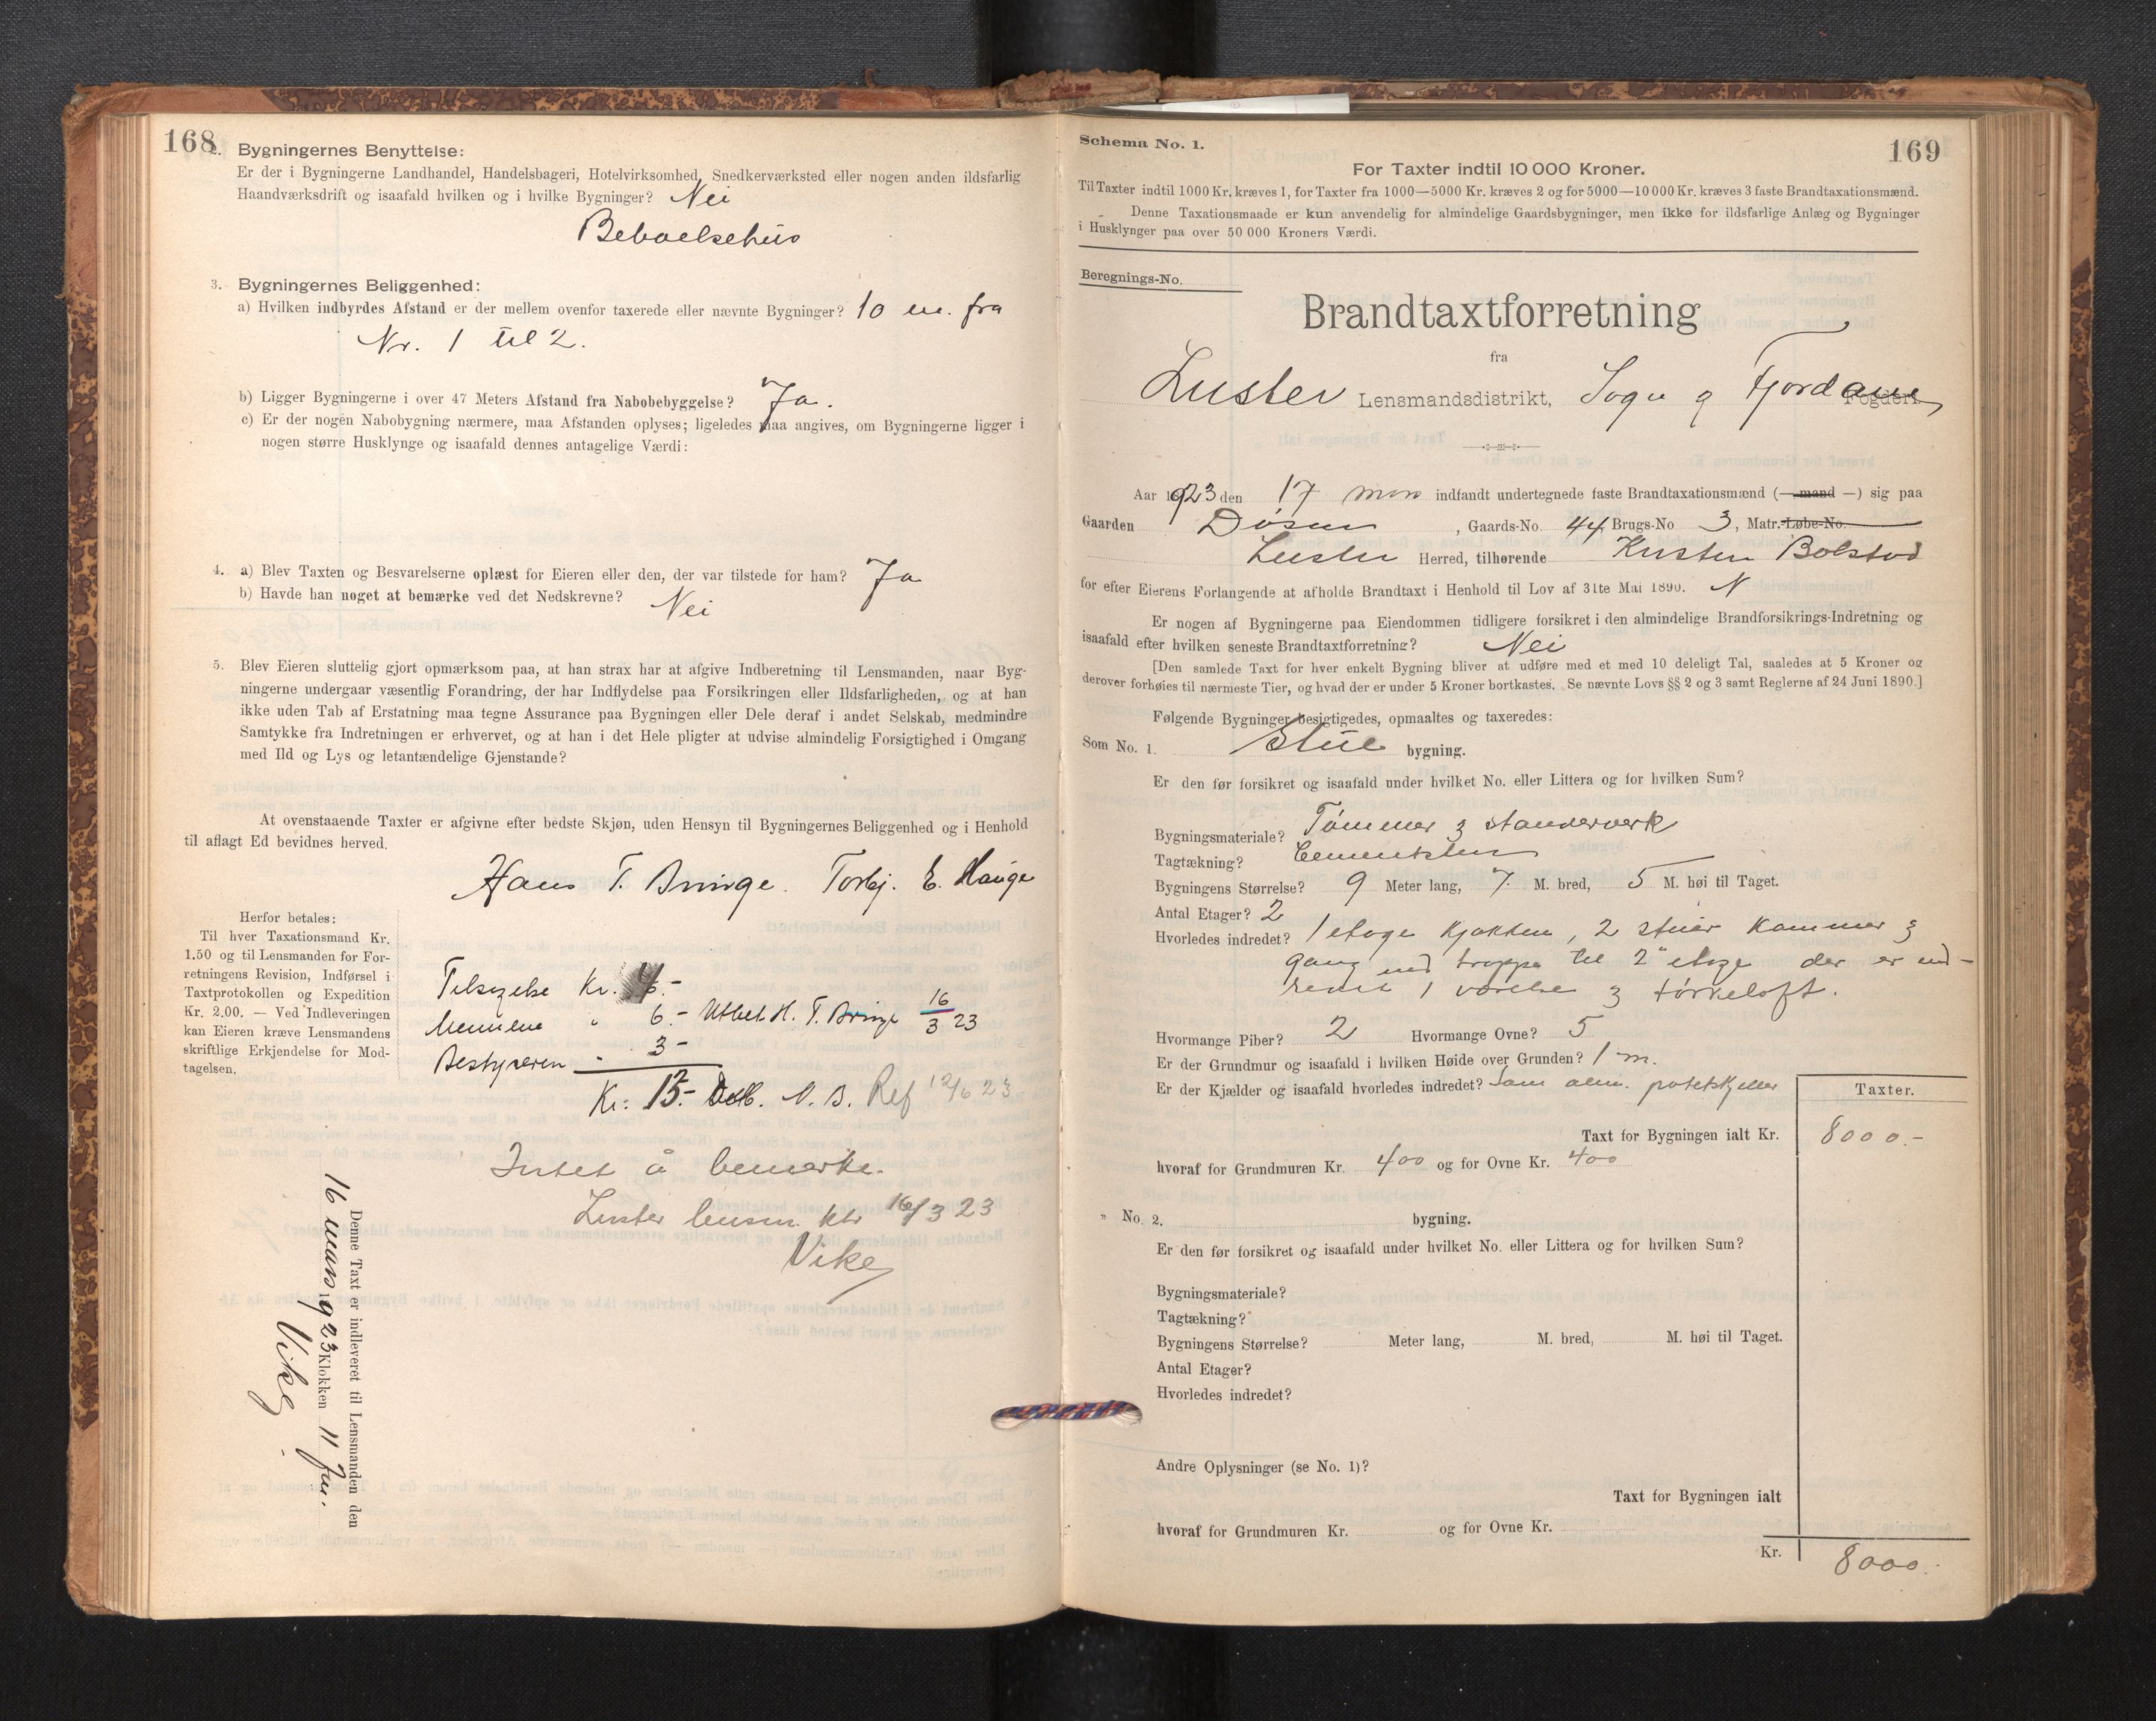 168
2. Bygningernes Benyttelse:
Er der i Bygningerne Landhandel, Handelsbageri, Hotelvirksomhed, Snedkerværksted eller nogen anden ildsfarlig
Haandværksdrift og isaafald hvilken og i hvilke Bygninger? Nei
Beboelsehus
3. Bygningernes Beliggenhed:
a) Hvilken indbyrdes Afstand er der mellem ovenfor taxerede eller nævnte Bygninger? 10 m. fra
Nr. 1 til 2.
b) Ligger Bygningerne i over 47 Meters Afstand fra Nabobebyggelse? Ja.
c) Er der nogen Nabobygning nærmere, maa Afstanden oplyses; ligeledes maa angives, om Bygningerne ligger i
nogen større Husklynge og isaafald dennes antagelige Værdi:
4. a) Blev Taxten og Besvarelserne oplæst for Eieren eller den, der var tilstede for ham? Ja
b) Havde han noget at bemærke ved det Nedskrevne? Nei
5. Blev Eieren sluttelig gjort opmærksom paa, at han strax har at afgive Indberetning til Lensmanden, naar Byg-
ningerne undergaar væsentlig Forandring, der har Indflydelse paa Forsikringen eller Ildsfarligheden, og at han
ikke uden Tab af Erstatning maa tegne Assurance paa Bygningen eller Dele deraf i andet Selskab, medmindre
Samtykke fra Indretningen er erhvervet, og at han i det Hele pligter at udvise almindelig Forsigtighed i Omgang
med Ild og Lys og letantændelige Gjenstande?
At ovenstaaende Taxter er afgivne efter bedste Skjøn, uden Hensyn til Bygningernes Beliggenhed og i Henhold
til aflagt Ed bevidnes herved.
Hans T. Bringe. Torbj. E. Hauge
Herfor betales:
Til hver Taxationsmand Kr.
1.50 og til Lensmanden for For-
retningens Revision, Indførsel i
Taxtprotokollen og Expedition
Kr. 2.00. — Ved Indleveringen
kan Eieren kræve Lensmandens
skriftlige Erkjendelse for Mod-
tagelsen.
Tilsigelse Kr. 6.-
Mennene " 6.- Utbet H. T. Bringe 16/3 23
Bestyreren - 3-
Kr: 15.- N. B. Ref 12/6 23
Intet å bemerke.
Luster lensm. ktr 16/3 23
Vike
Denne Taxt er indleveret til Lensmanden den
16 mars 1923 Klokken 11 Fm.
Vike
169
Schema No. 1.
For Taxter indtil 10 000 Kroner.
Til Taxter indtil 1000 Kr. kræves 1, for Taxter fra 1000—5000 Kr. kræves 2 og for 5000—10 000 Kr. kræves 3 faste Brandtaxationsmænd.
Denne Taxationsmaade er kun anvendelig for almindelige Gaardsbygninger, men ikke for ildsfarlige Anlæg og Bygninger
i Husklynger paa over 50 000 Kroners Værdi.
Beregnings-No.
Brandtaxtforretning
fra
Luster Lensmandsdistrikt, Sogn og Fjordane Fogderi.
Aar 1923 den 17 indfandt undertegnede faste Brandtaxationsmænd (— mand —) sig paa
Gaarden Døsen, Gaards-No. 44 Brugs-No 3, Matr.-Løbe-No.
Luster Herred, tilhørende Kristen Bolstad
for efter Eierens Forlangende at afholde Brandtaxt i Henhold til Lov af 31te Mai 1890. N
Er nogen af Bygningerne paa Eiendommen tidligere forsikret i den almindelige Brandforsikrings-Indretning og
isaafald efter hvilken seneste Brandtaxtforretning? Nei
[Den samlede Taxt for hver enkelt Bygning bliver at udføre med et med 10 deleligt Tal, saaledes at 5 Kroner og
derover forhøies til nærmeste Tier, og hvad der er under 5 Kroner bortkastes. Se nævnte Lovs §§ 2 og 3 samt Reglerne af 24 Juni 1890.]
Følgende Bygninger besigtigedes, opmaaltes og taxeredes:
Som No. 1. Stue bygning.
Er den før forsikret og isaafald under hvilket No. eller Littera og for hvilken Sum?
Bygningsmateriale? Tømmer & standerverk
Tagtækning? Cementsten
Bygningens Størrelse? 9 Meter lang, 7 M. bred, 5 M. høi til Taget.
Antal Etager? 2
Hvorledes indredet? 1 etage kjøkken, 2 stuer kammer &
gang med trappe til 2 etage der er ind-
redet 1 værelse & tørkeloft.
Hvormange Piber? 2 Hvormange Ovne? 5
Er der Grundmur og isaafald i hvilken Høide over Grunden? 1 m.
Er der Kjælder og isaafald hvorledes indredet? Som alm. potetkjeller
Taxter.
Taxt for Bygningen ialt Kr. 8000.-
hvoraf for Grundmuren Kr. 400 og for Ovne Kr. 400
" No. 2. bygning.
Er den før forsikret og isaafald under hvilket No. eller Littera og for hvilken Sum?
Bygningsmateriale?
Tagtækning?
Bygningens Størrelse? Meter lang, M. bred, M. høi til Taget.
Antal Etager?
Hvorledes indredet?
Andre Oplysninger (se No. 1)?
Taxt for Bygningen ialt
hvoraf for Grundmuren Kr. og for Ovne Kr.
Kr. 8000.